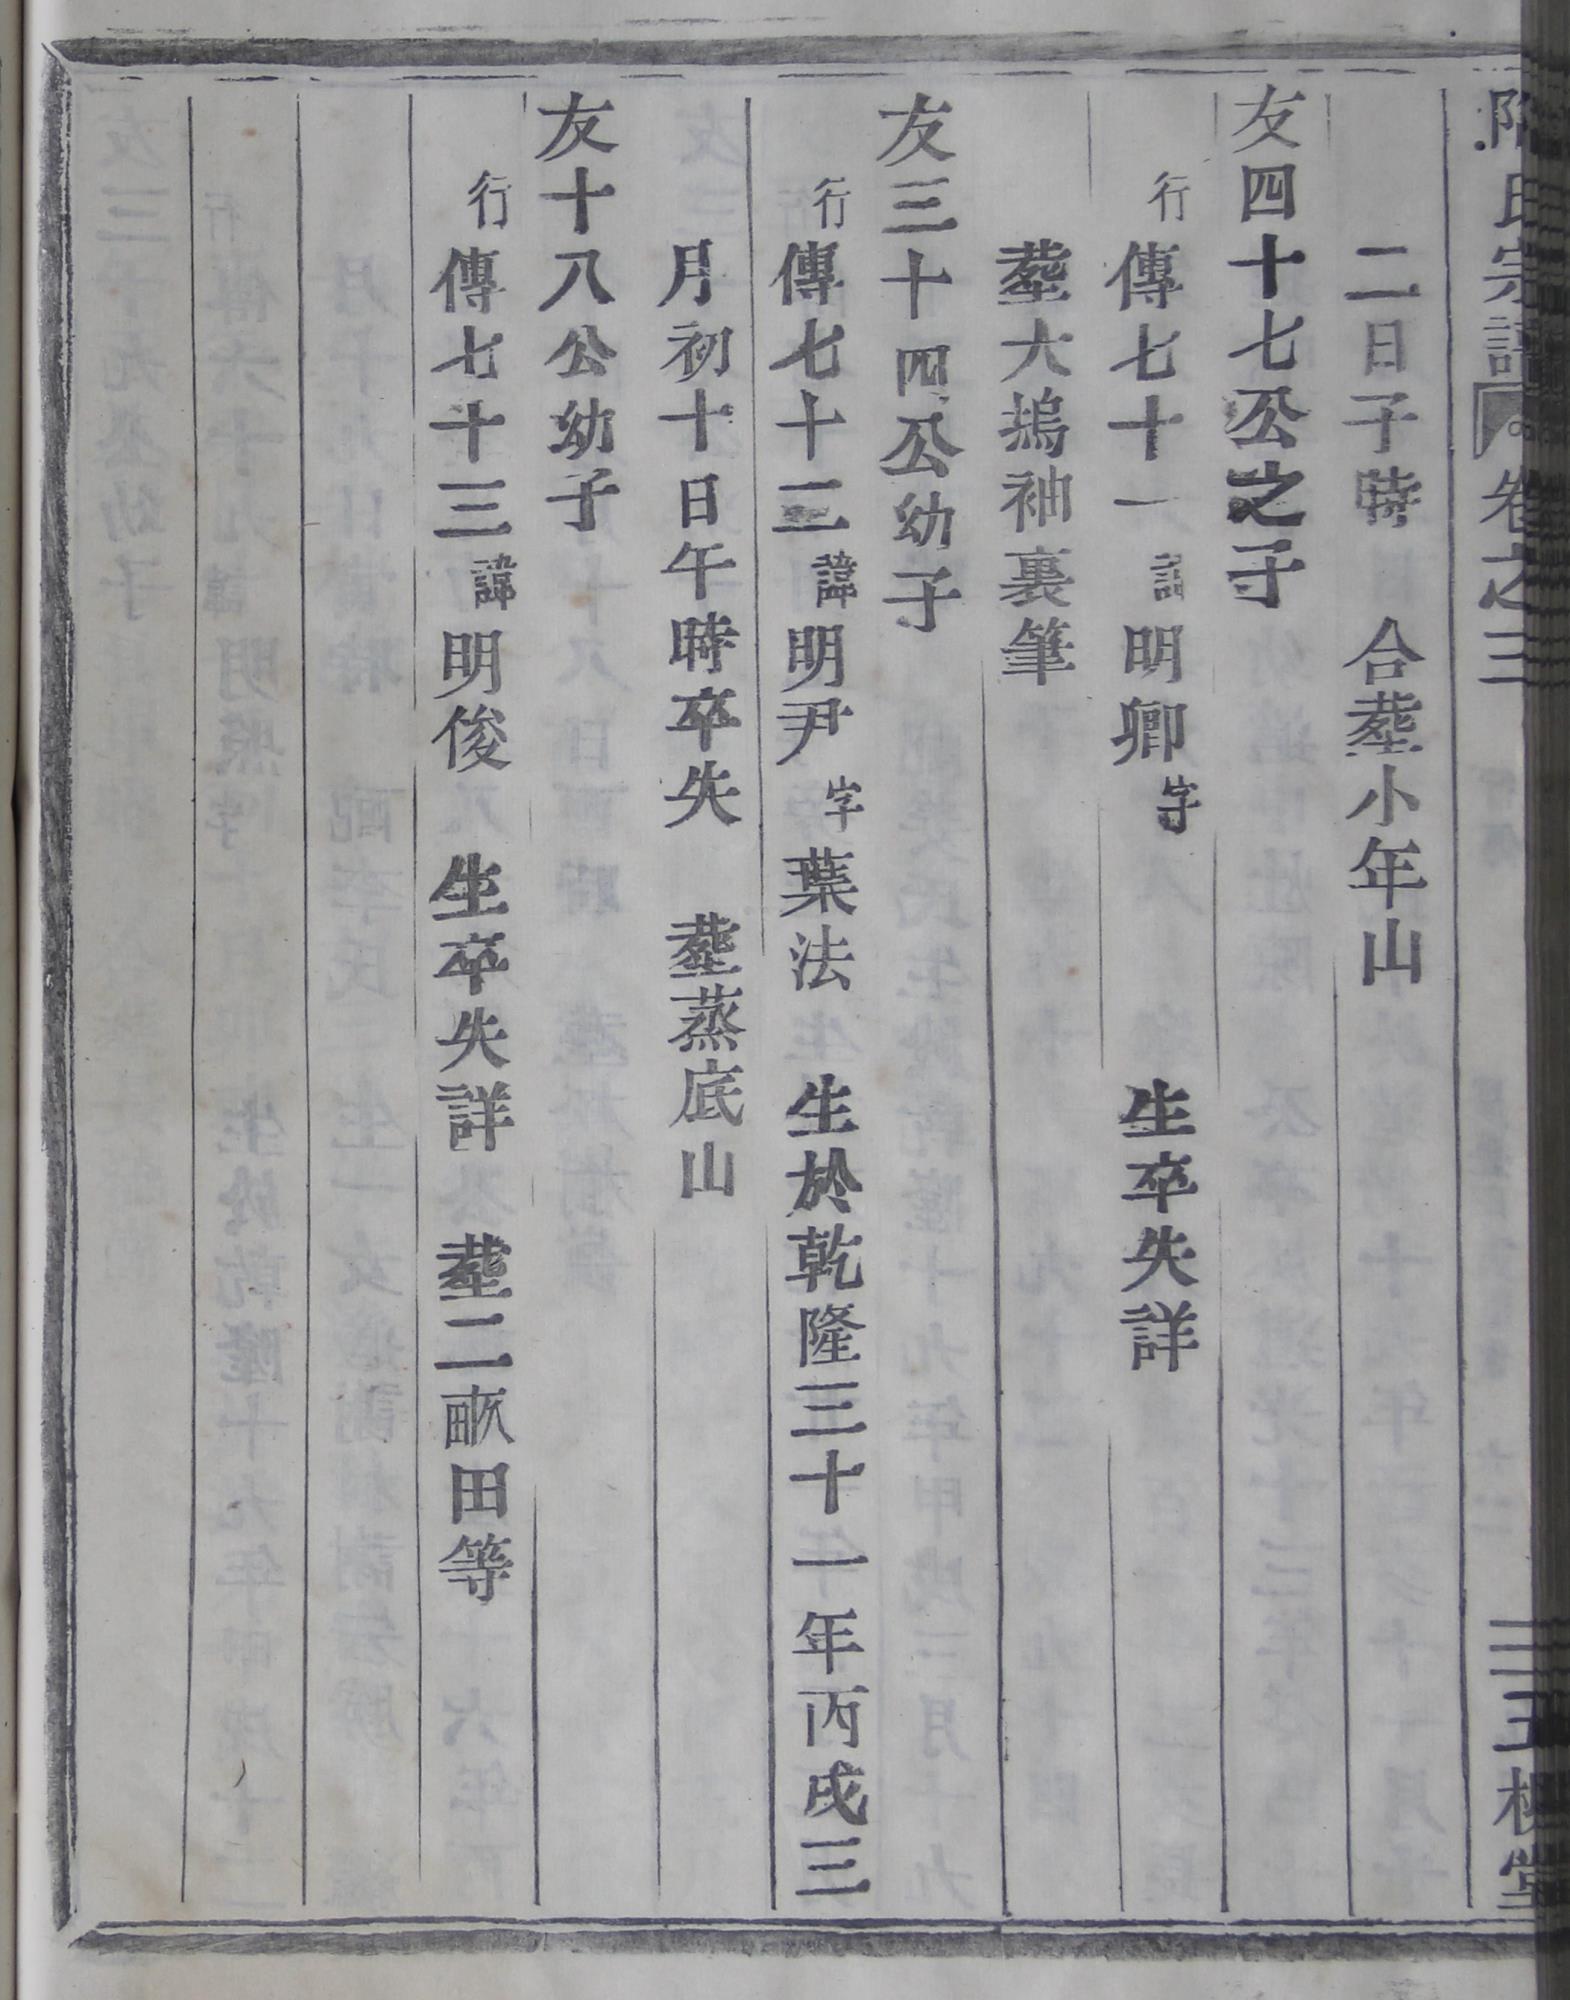 氏宗譜 卷之三
二日子時 合塟小年山
友四十七公之子
行傳七十一諱明卿字 生卒失詳
塟大塢袖裏筆
友三十四公幼子
行傳七十二諱明尹字葉法 生於乾隆三十一年丙戌三
月初十日午時卒失 塟蒸底山
友十八公幼子
行傳七十三諱明俊 生卒失詳 塟二畝田等